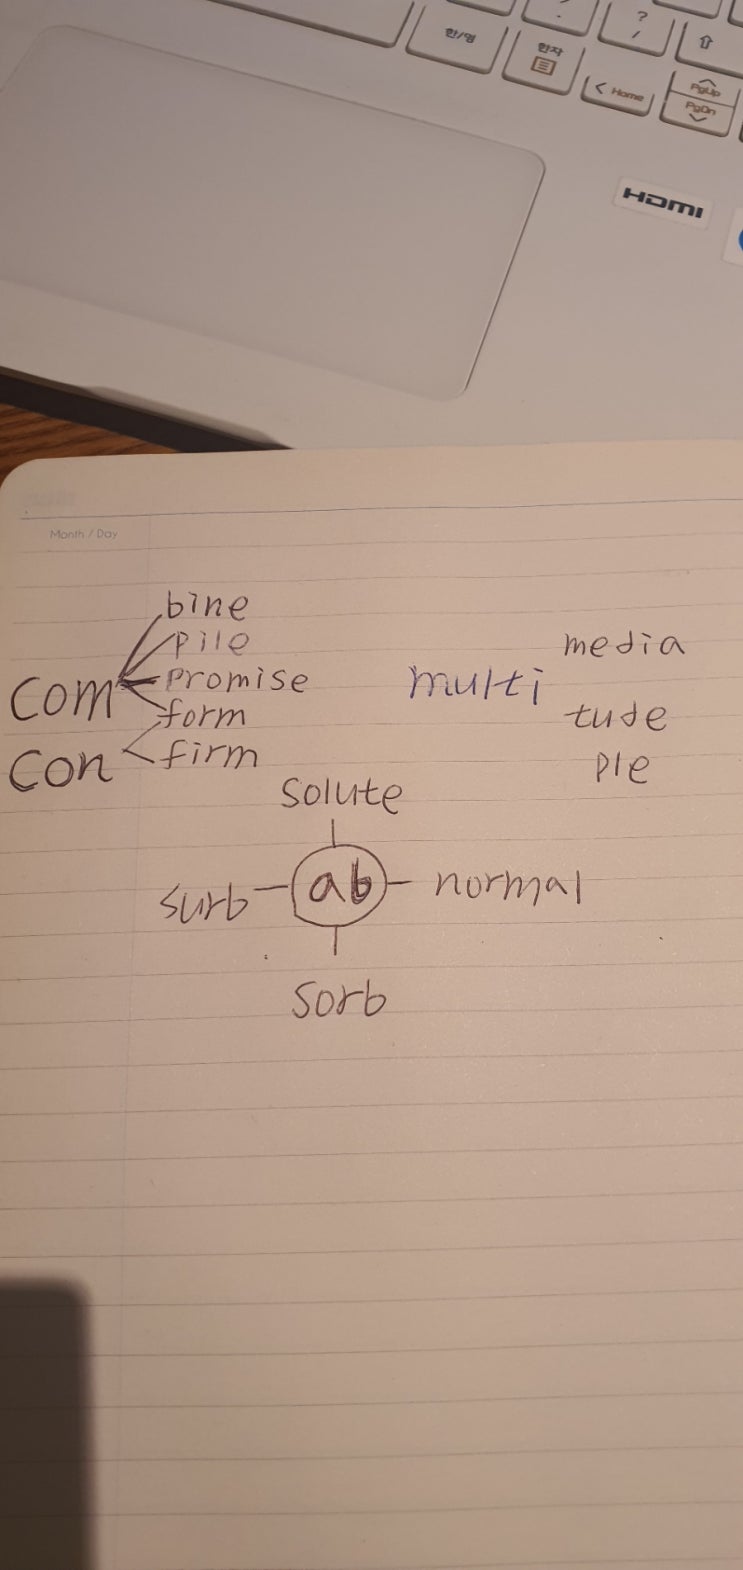 ?
/
한/영
한자
< Home
PgUp
PgDn
HDMI
Month / Day
bine
pile
media
com
promise
multi
form
tude
con
firm
ple
solute
surb
ab
normal
sorb